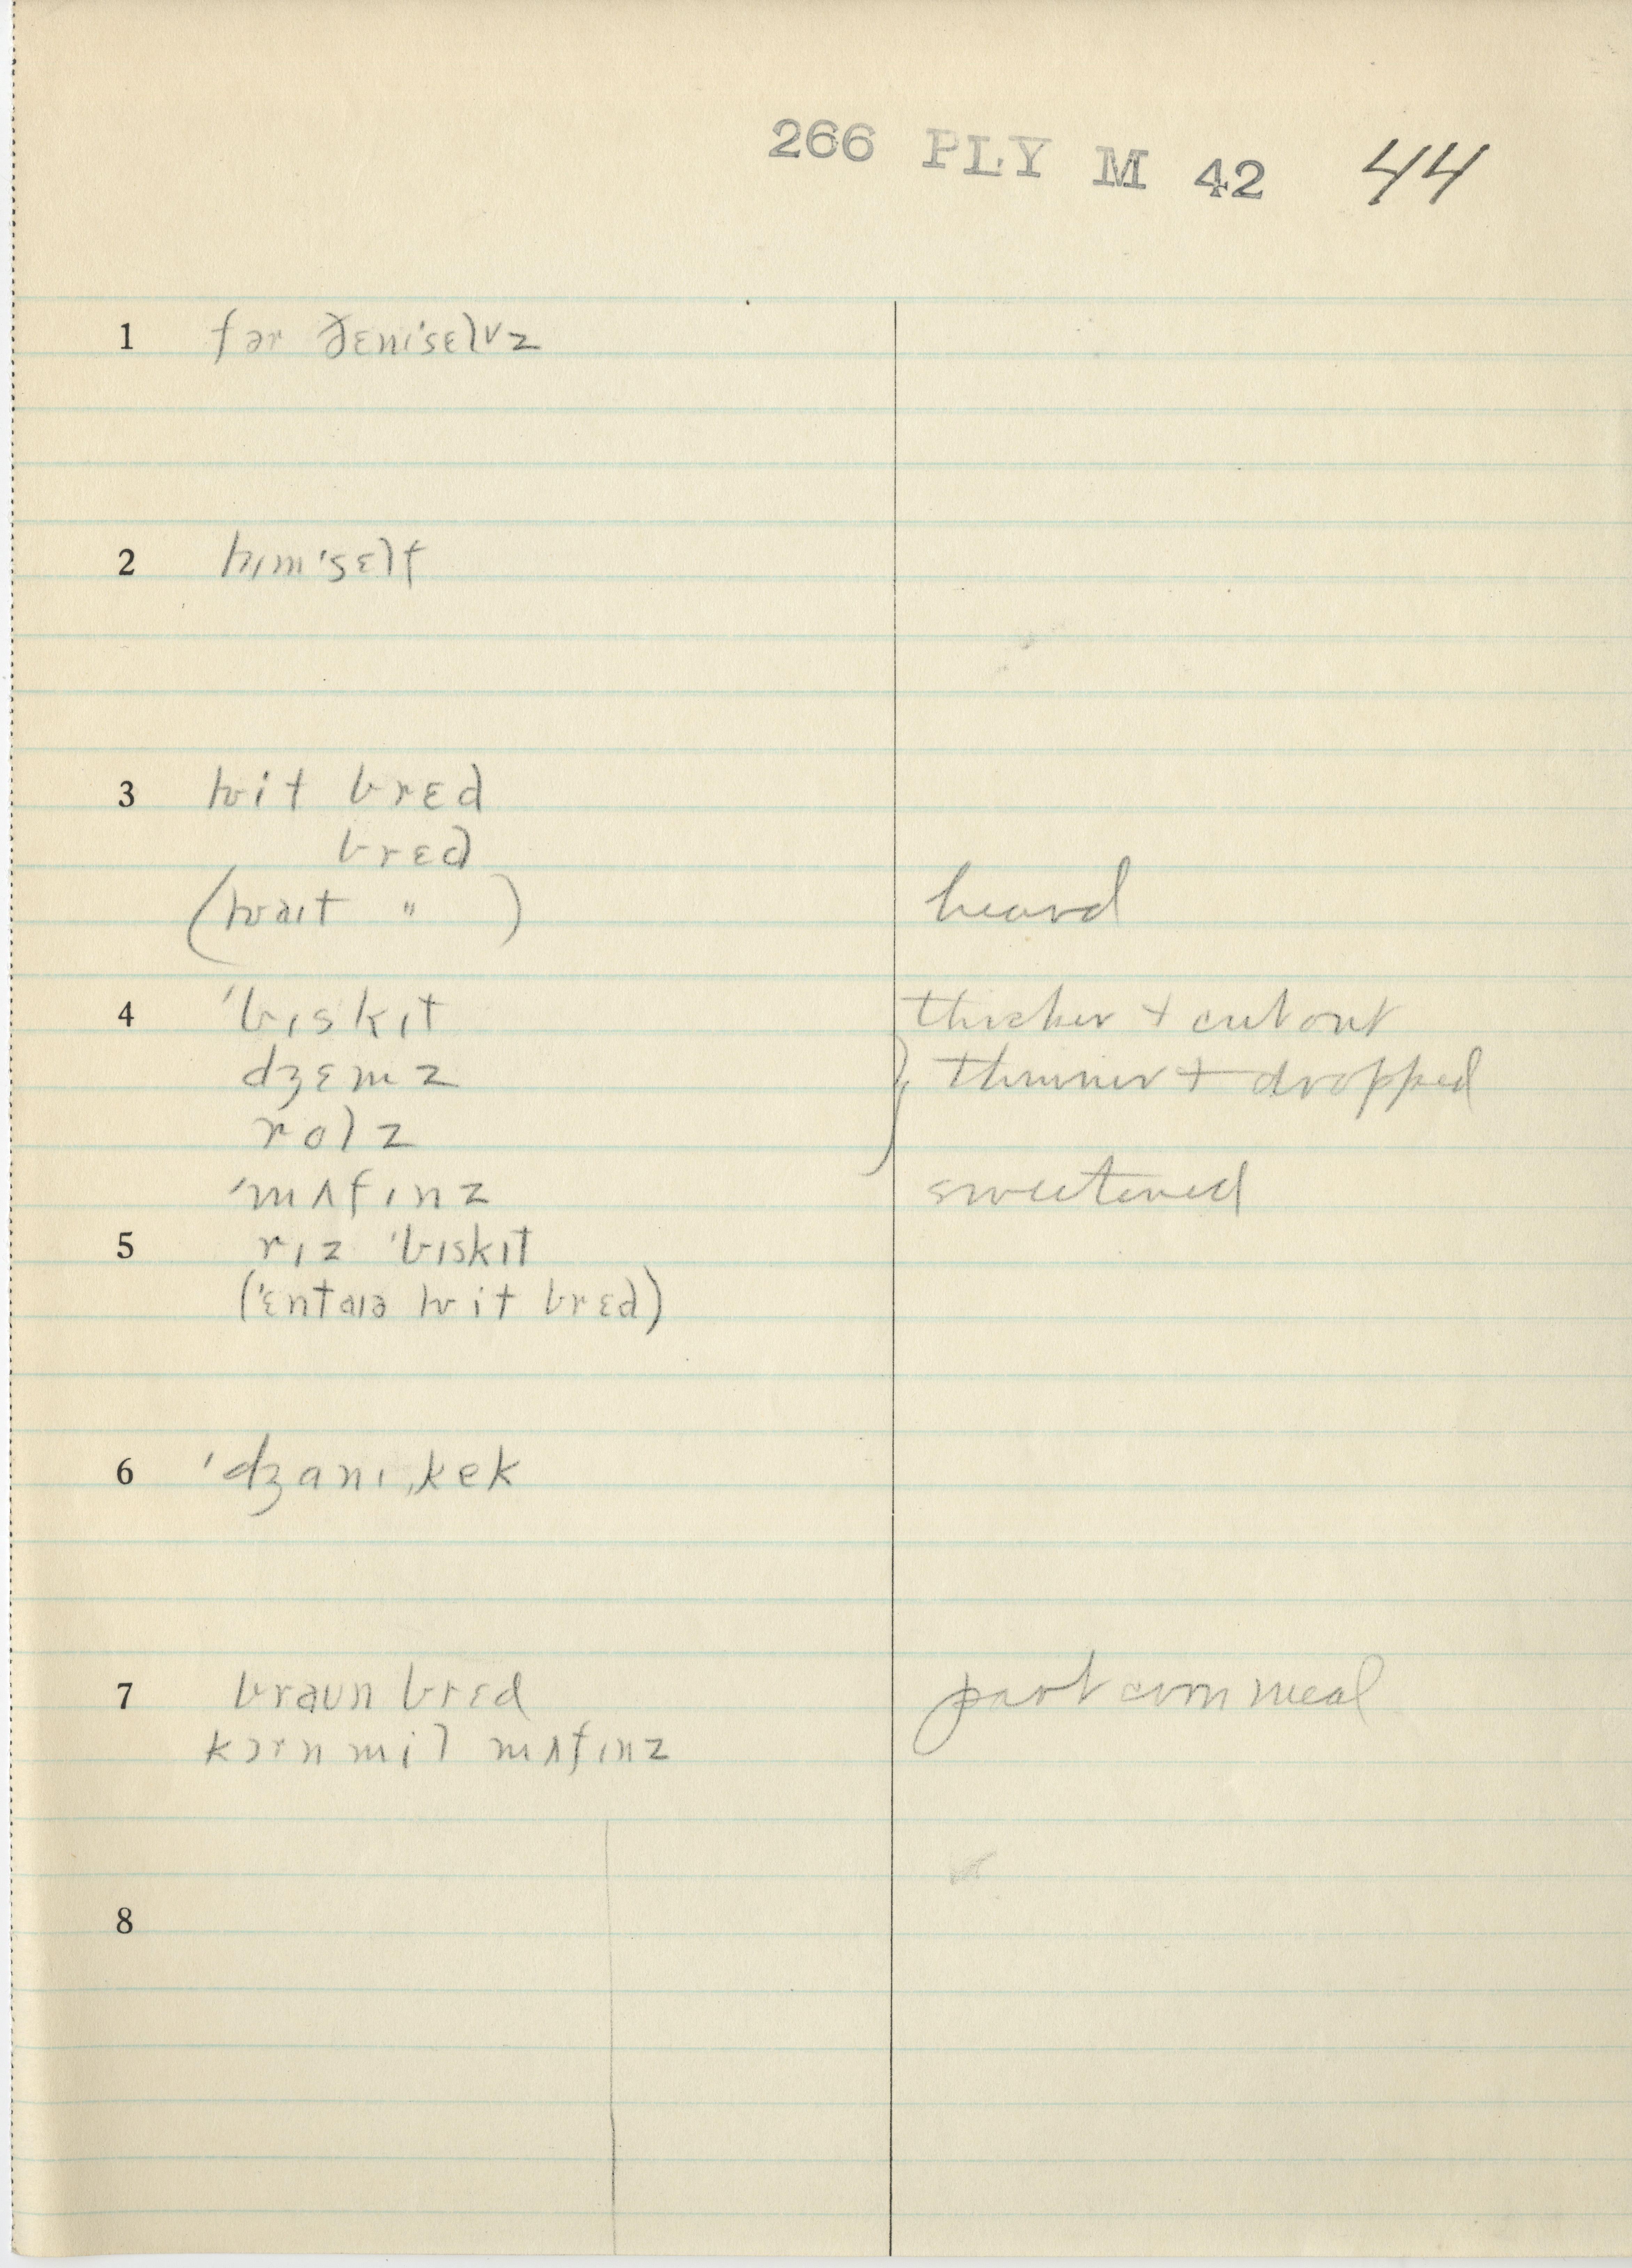 266 PLY M 42 44
1 fər ðɛmˈsɛlvz
2 hɪmˈsɛlf
3 hwit brɛd
brɛd
(hwaɪt " ) heard
4 ˈbɪskɪt thicker + cut out
dʒɛmz } thinner + dropped
rolz
ˈmʌfɪnz sweetened
5 rɪz ˈbɪskɪt
(ˈɛntaɪə hwit brɛd)
6 ˈdʒanɪˌkek
7 braʊn brɛd part corn meal
kɔrn mil mʌfɪnz
8